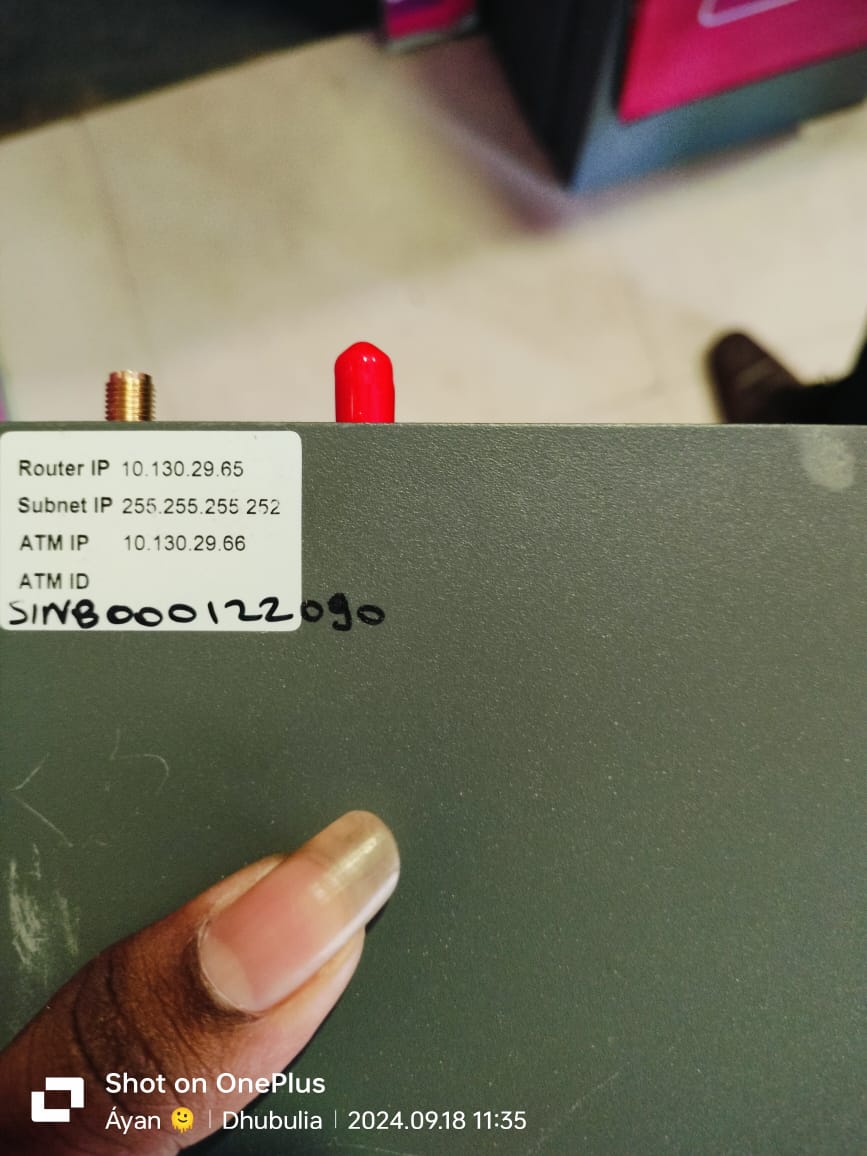 Router IP 10.130.29.65
Subnet IP 255.255.255 252
ATM IP 10.130.29.66
ATM ID
SINB000122090
Shot on OnePlus
Áyan 🫠 | Dhubulia | 2024.09.18 11:35